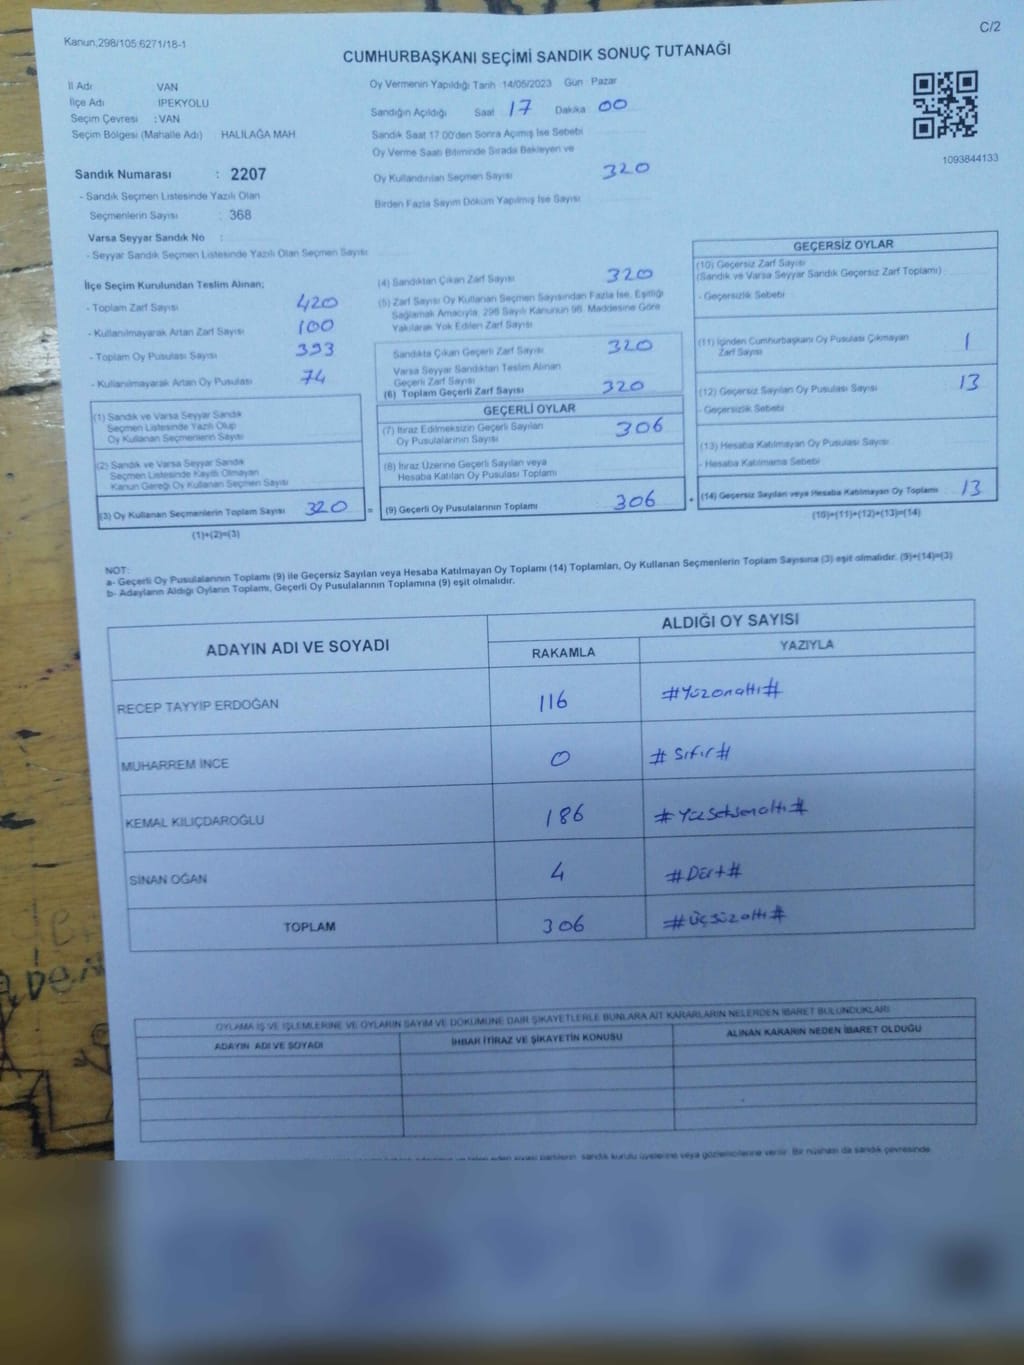 Kanun;298/105;6271/18-1
C/2
CUMHURBAŞKANI SEÇİMİ SANDIK SONUÇ TUTANAĞI
İl Adı VAN
İlçe Adı İPEKYOLU
Seçim Çevresi : VAN
Seçim Bölgesi (Mahalle Adı) : HALİLAĞA MAH
Sandık Numarası : 2207
- Sandık Seçmen Listesinde Yazılı Olan
Seçmenlerin Sayısı : 368
Varsa Seyyar Sandık No :
- Seyyar Sandık Seçmen Listesinde Yazılı Olan Seçmen Sayısı
Oy Vermenin Yapıldığı Tarih : 14/05/2023 Gün : Pazar
Sandığın Açıldığı Saat 17 Dakika 00
Sandık Saat 17.00'den Sonra Açımış İse Sebebi
Oy Verme Saati Bitiminde Sırada Bekleyen ve
Oy Kullandırılan Seçmen Sayısı 320
Birden Fazla Sayım Döküm Yapılmış İse Sayısı
1093844133
İlçe Seçim Kurulundan Teslim Alınan;
- Toplam Zarf Sayısı 420
- Kullanılmayarak Artan Zarf Sayısı 100
- Toplam Oy Pusulası Sayısı 393
- Kullanılmayarak Artan Oy Pusulası 74
(1) Sandık ve Varsa Seyyar Sandık
Seçmen Listesinde Yazılı Olup
Oy Kullanan Seçmenlerin Sayısı
(2) Sandık ve Varsa Seyyar Sandık
Seçmen Listesinde Kayıtlı Olmayan
Kanun Gereği Oy Kullanan Seçmen Sayısı
(3) Oy Kullanan Seçmenlerin Toplam Sayısı 320 =
(1)+(2)=(3)
(4) Sandıktan Çıkan Zarf Sayısı 320
(5) Zarf Sayısı Oy Kullanan Seçmen Sayısından Fazla İse, Eşitliği
Sağlamak Amacıyla, 298 Sayılı Kanunun 98. Maddesine Göre
Yakılarak Yok Edilen Zarf Sayısı
Sandıkta Çıkan Geçerli Zarf Sayısı 320
Varsa Seyyar Sandıktan Teslim Alınan
Geçerli Zarf Sayısı
(6) Toplam Geçerli Zarf Sayısı 320
GEÇERLİ OYLAR
(7) İtiraz Edilmeksizin Geçerli Sayılan
Oy Pusulalarının Sayısı 306
(8) İtiraz Üzerine Geçerli Sayılan veya
Hesaba Katılan Oy Pusulası Toplamı
(9) Geçerli Oy Pusulalarının Toplamı 306 +
GEÇERSİZ OYLAR
(10) Geçersiz Zarf Sayısı
(Sandık ve Varsa Seyyar Sandık Geçersiz Zarf Toplamı)
- Geçersizlik Sebebi
(11) İçinden Cumhurbaşkanı Oy Pusulası Çıkmayan
Zarf Sayısı 1
(12) Geçersiz Sayılan Oy Pusulası Sayısı 13
- Geçersizlik Sebebi
(13) Hesaba Katılmayan Oy Pusulası Sayısı
- Hesaba Katılmama Sebebi
(14) Geçersiz Sayılan veya Hesaba Katılmayan Oy Toplamı 13
(10)+(11)+(12)+(13)=(14)
NOT:
a- Geçerli Oy Pusulalarının Toplamı (9) ile Geçersiz Sayılan veya Hesaba Katılmayan Oy Toplamı (14) Toplamları, Oy Kullanan Seçmenlerin Toplam Sayısına (3) eşit olmalıdır. (9)+(14)=(3)
b- Adayların Aldığı Oyların Toplamı, Geçerli Oy Pusulalarının Toplamına (9) eşit olmalıdır.
ADAYIN ADI VE SOYADI ALDIĞI OY SAYISI
RAKAMLA YAZIYLA
RECEP TAYYİP ERDOĞAN 116 #Yüzonaltı#
MUHARREM İNCE 0 #Sıfır#
KEMAL KILIÇDAROĞLU 186 #Yüzseksenaltı#
SİNAN OĞAN 4 #Dört#
TOPLAM 306 #Üçyüzaltı#
OYLAMA İŞ VE İŞLEMLERİNE VE OYLARIN SAYIM VE DÖKÜMÜNE DAİR ŞİKAYETLERLE BUNLARA AİT KARARLARIN NELERDEN İBARET BULUNDUKLARI
ADAYIN ADI VE SOYADI İHBAR İTİRAZ VE ŞİKAYETİN KONUSU ALINAN KARARIN NEDEN İBARET OLDUĞU
sandık kurulu üyelerine veya gözlemcilerine verilir. Bir nüshası da sandık çevresinde